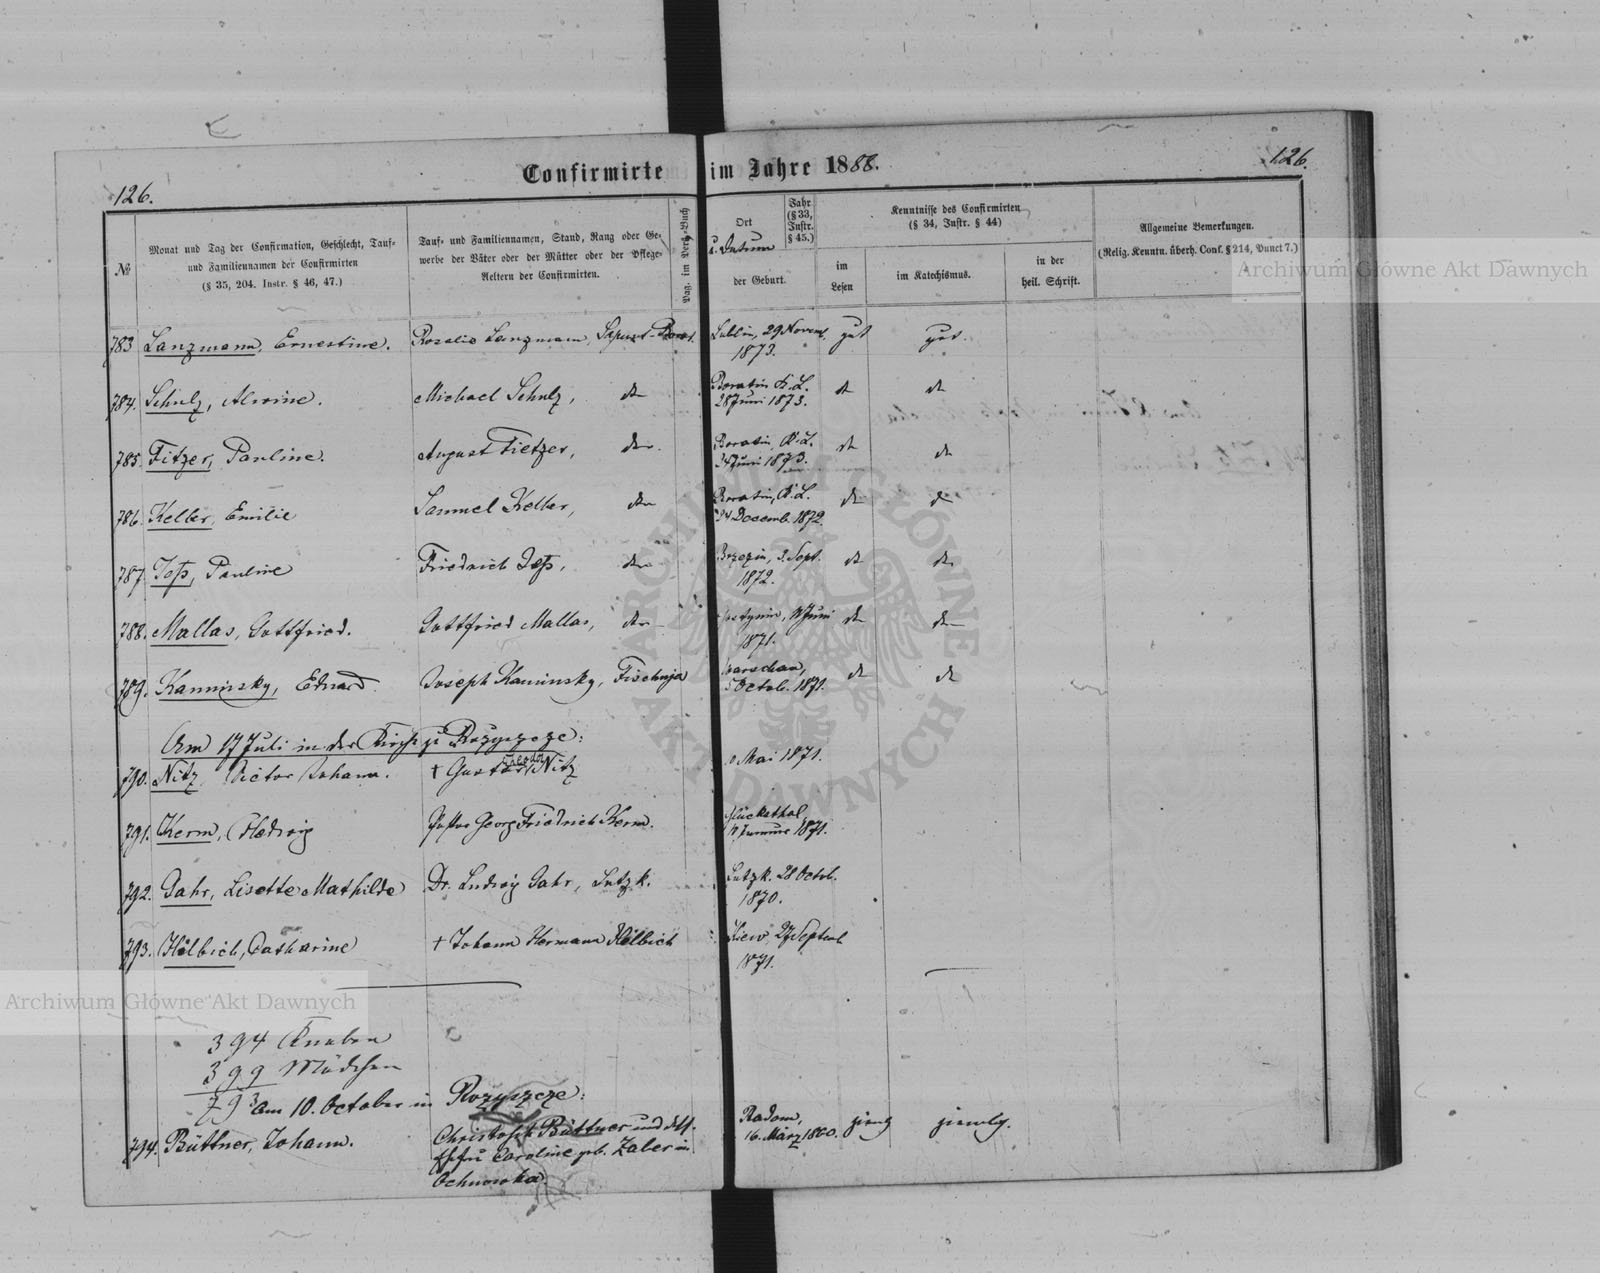 126.
Confirmirte im Jahre 1888.
126.
№
Monat und Tag der Confirmation, Geschlecht, Tauf-
und Familiennamen der Confirmirten
(§ 35, 204. Instr. § 46, 47.)
Tauf- und Familiennamen, Stand, Rang oder Ge-
werbe der Väter oder der Mütter oder der Pflege-
Aeltern der Confirmirten.
Pag. im Pers.-Buch
Ort
u. Datum
der Geburt.
Jahr
(§ 33,
Instr.
§ 45.)
Kenntnisse des Confirmirten
(§ 34, Instr. § 44)
im
Lesen
im Katechismus.
in der
heil. Schrift.
Allgemeine Bemerkungen.
(Relig. Kenntn. überh. Conf. § 214, Punct 7.)
Archiwum Główne Akt Dawnych
783 Lanzmann, Ernestine. Rosalie Lanzmann, Lublin, 29 Novemb. gut gut.
1873.
784. Schulz, Alwine. Michael Schulz, do Boratin K. L. do do
28 Juni 1873.
785. Fitzer, Pauline. August Fietzer, do. Boratin, K. L. do do
24 Juni 1873.
786. Keller, Emilie Samuel Keller, do Boratin, K. L. do do
24 Decemb. 1872.
787. Joß, Pauline Friedrich Joß, do Brzezin, 2. Sept. do do
1872.
788. Mallas, Gottfried. Gottfried Mallas, do Juni do do
1871.
789. Kaminsky, Eduard. Joseph Kaminsky, Warschau, do do
5 Octob. 1871.
Am 17 Juli in der Kirche zu Rożyszcze:
790. Nitz Victor Johann. † Gustav Nitz Mai 1871.
791. Kerm, Hedwig Pastor Georg Friedrich Kerm. Glücksthal,
17 Januar 1871.
792. Gahr, Lisette Mathilde Dr. Ludwig Gahr, Lutzk. Lutzk. 28 Octob.
1870.
793. Hilbich, Catharine † Johann Hermann Hilbich Kiew, 27 Septemb
1871.
Archiwum Główne Akt Dawnych
394 Knaben
399 Mädchen
793
Am 10. October in Rożyszcze:
794. Büttner, Johann. Christoph Büttner und dess. Radom, ziemlg.
Ehefr. Caroline geb. Zaler in 16. März 1860.
Ochnowka.
ARCHIWUM GŁÓWNE
AKT DAWNYCH